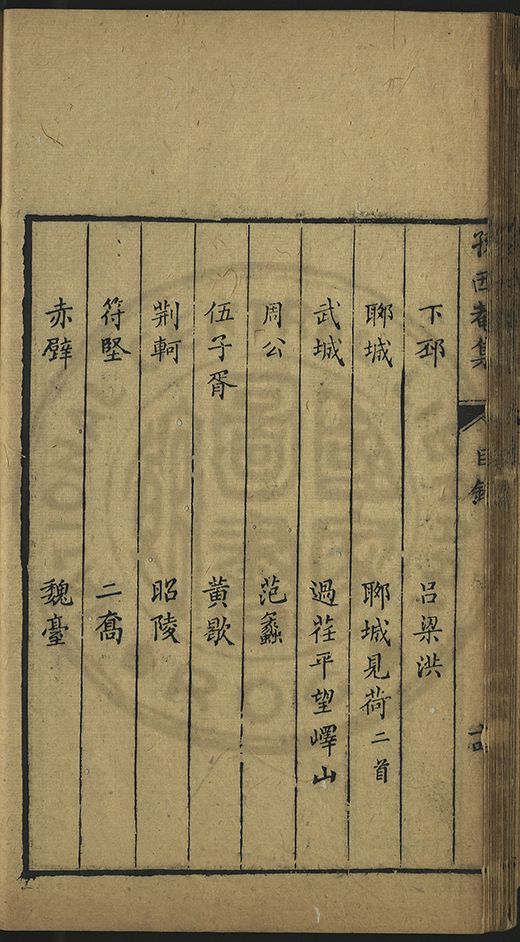 孫西菴集
目錄
下邳 呂梁洪
聊城 聊城見荷二首
武城 過茌平望嶧山
周公 范蠡
伍子胥 黃歇
荆軻 昭陵
符堅 二喬
赤壁 魏臺